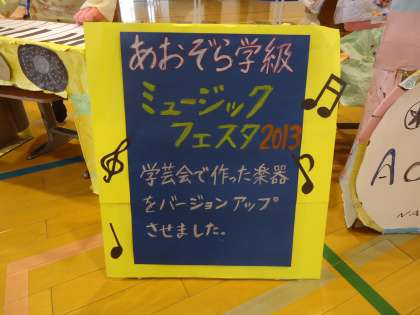 あおぞら学級
ミュージック
フェスタ2013
学芸会で作った楽器
をバージョンアップ
させました。
AC